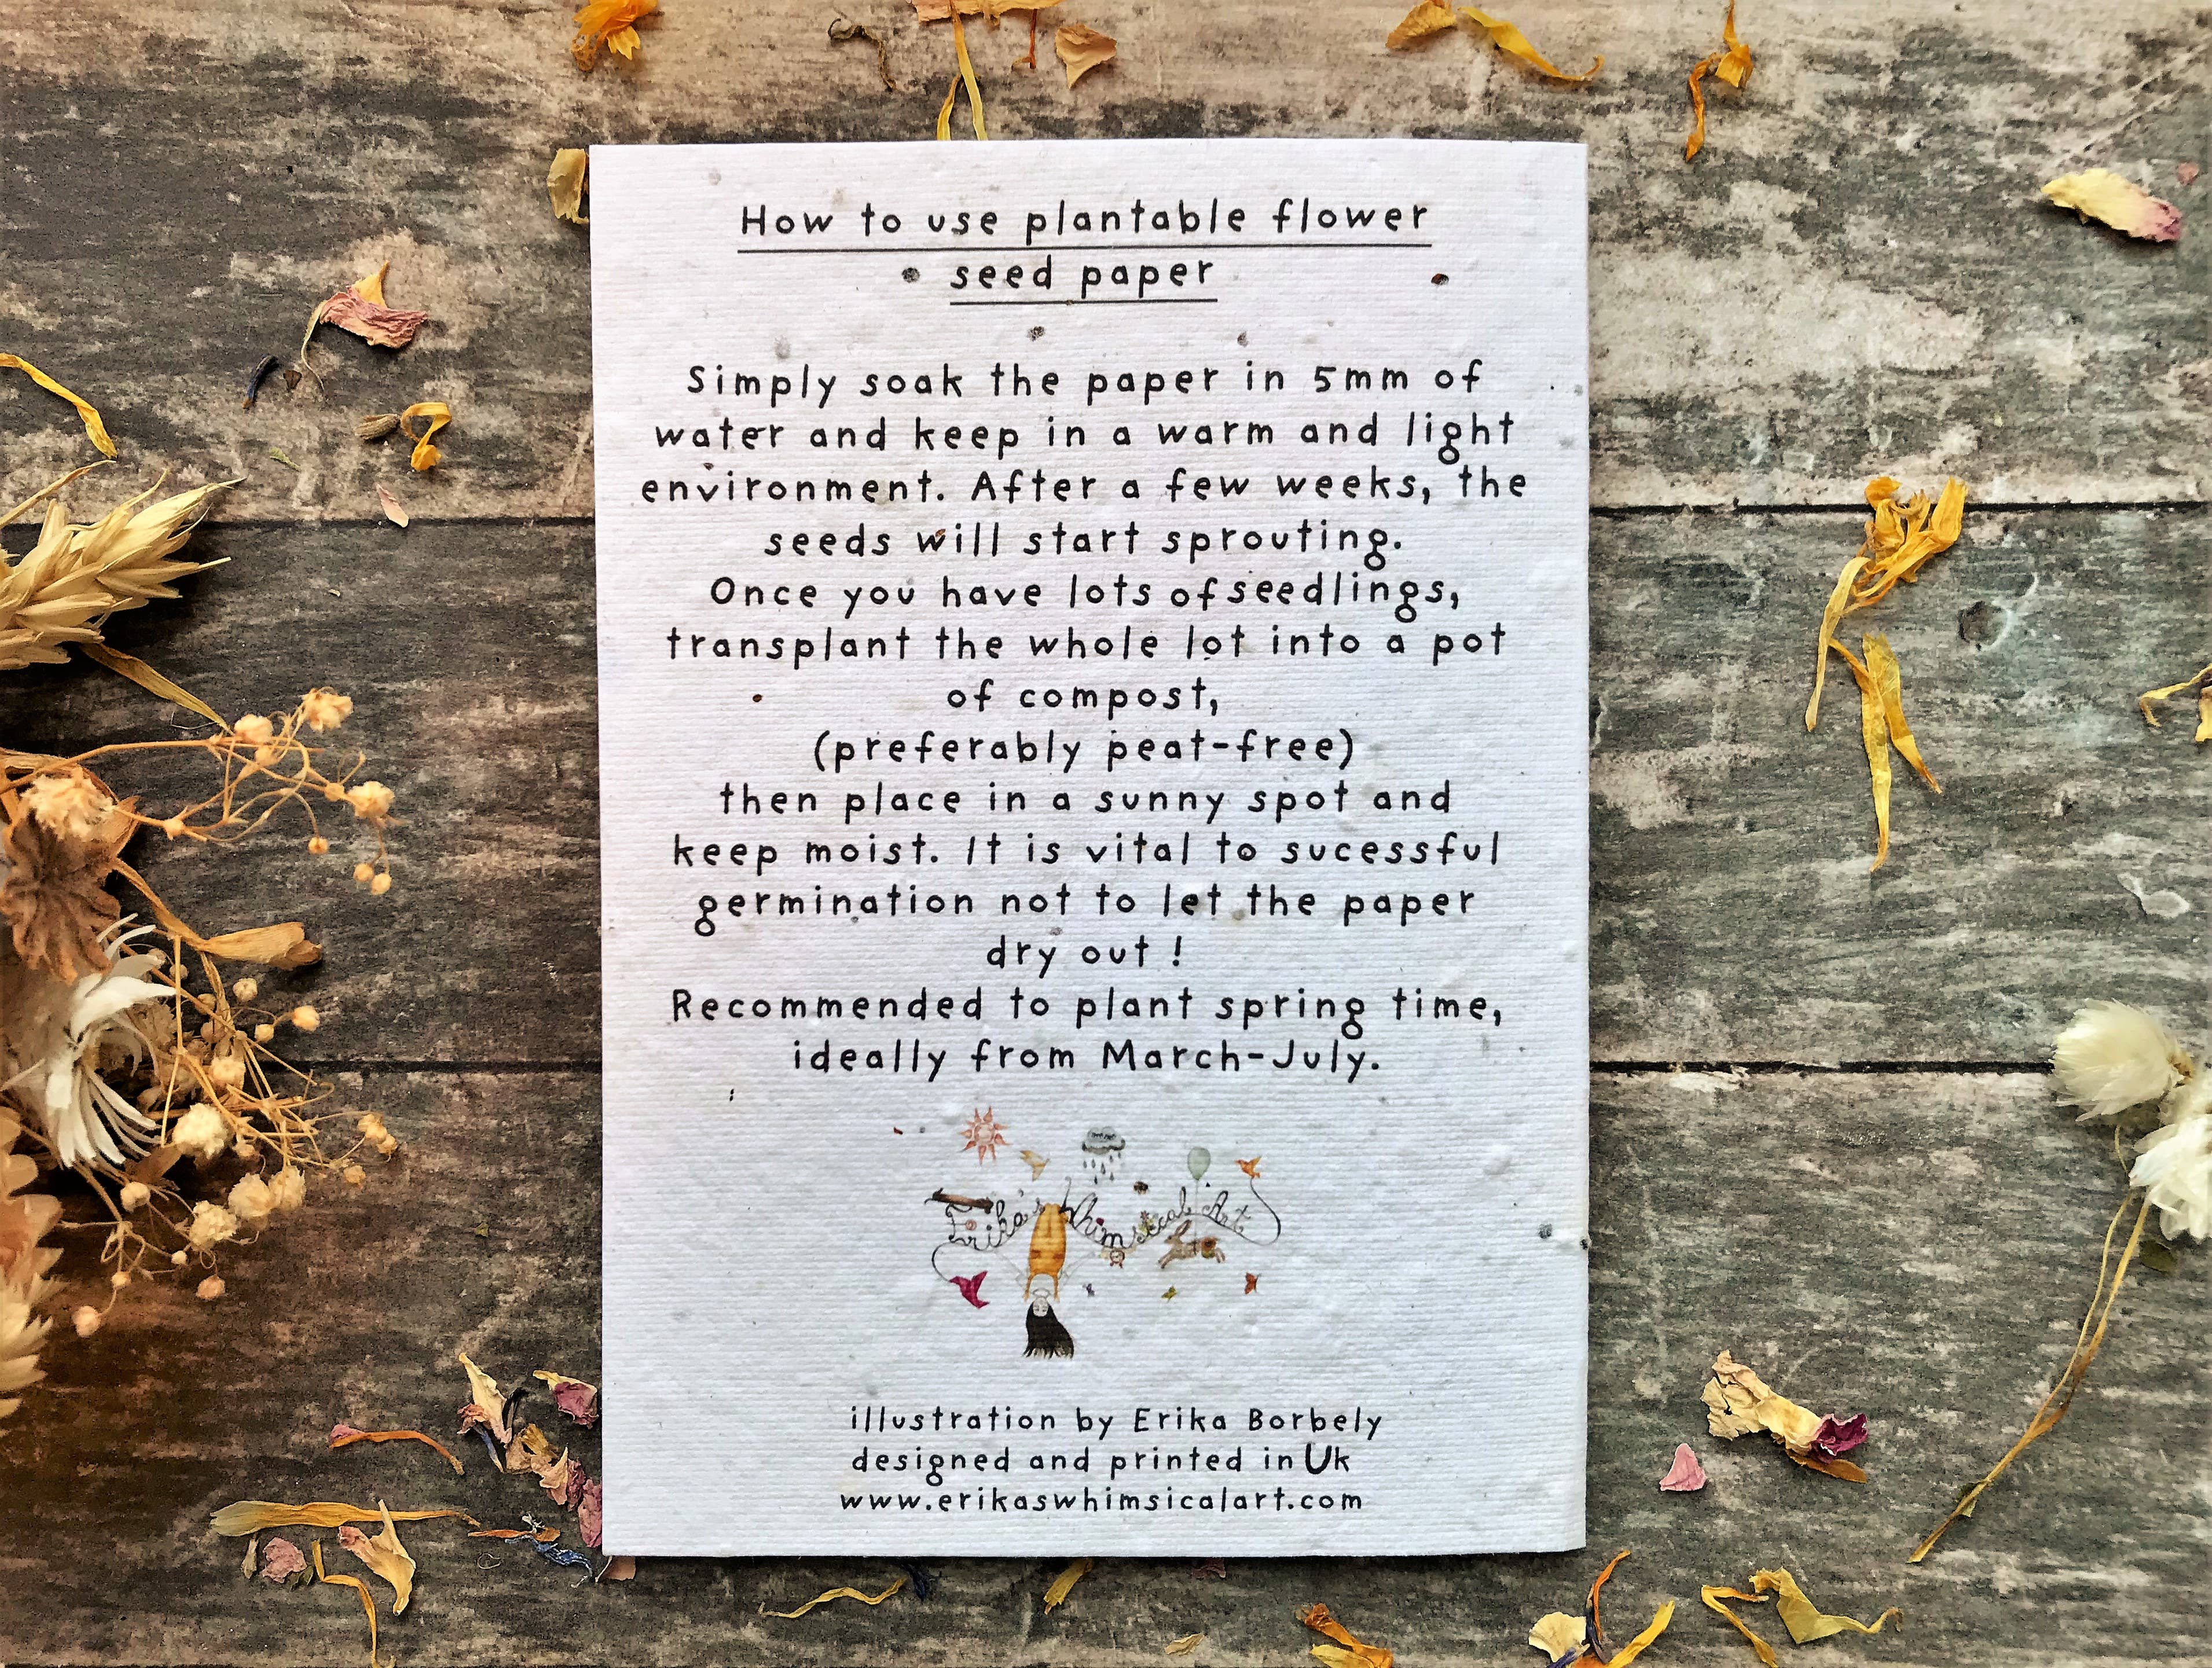 How to use plantable flower
seed paper
Simply soak the paper in 5mm of
water and keep in a warm and light
environment. After a few weeks, the
seeds will start sprouting.
Once you have lots of seedlings,
transplant the whole lot into a pot
of compost,
(preferably peat-free)
then place in a sunny spot and
keep moist. It is vital to sucessful
germination not to let the paper
dry out !
Recommended to plant spring time,
ideally from March-July.
Erika's Whimsical Art
illustration by Erika Borbely
designed and printed in Uk
www.erikaswhimsicalart.com